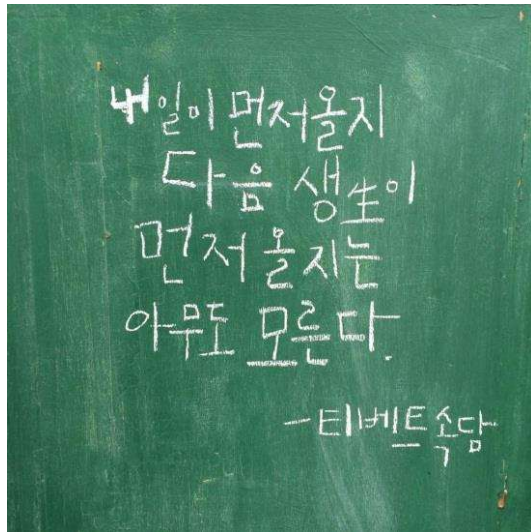 내일이 먼저올지
다음 생生이
먼저올지는
아무도 모른다.
-티벤트속담